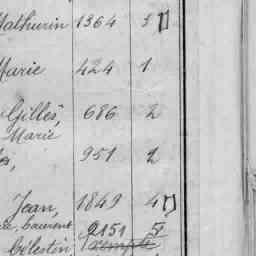 Mathurin 1364 3
Marie 424 1
Gilles, 686 2
Marie
951 2
Jean, 1849 4
Laurent 2151 5
Célestin Exempte